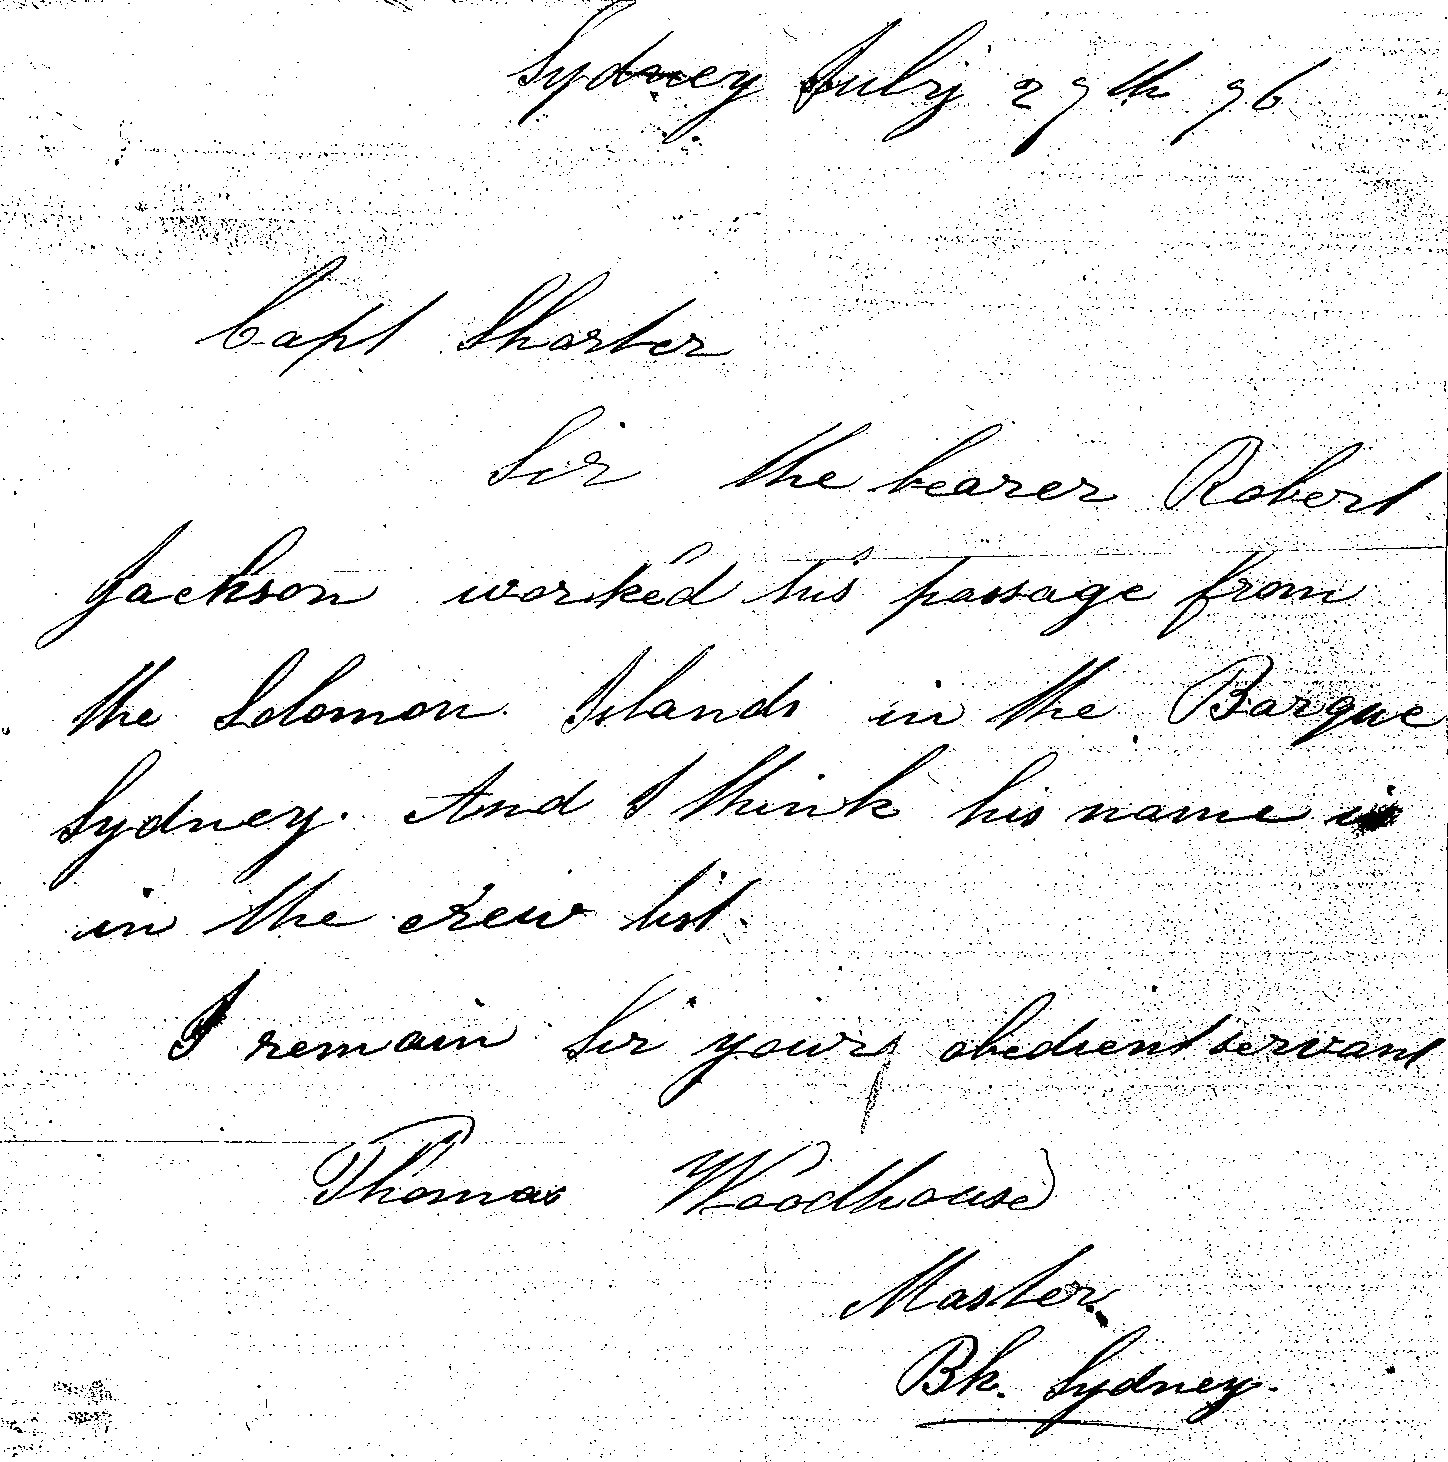 Sydney July 27th 76
Capt Sharter
Sir the bearer Robert
Jackson worked his passage from
the Solomon Islands in the Barque
Sydney. And I think his name is
in the crew list.
I remain Sir yours obedient servant
Thomas Woodhouse
Master
Bk. Sydney.